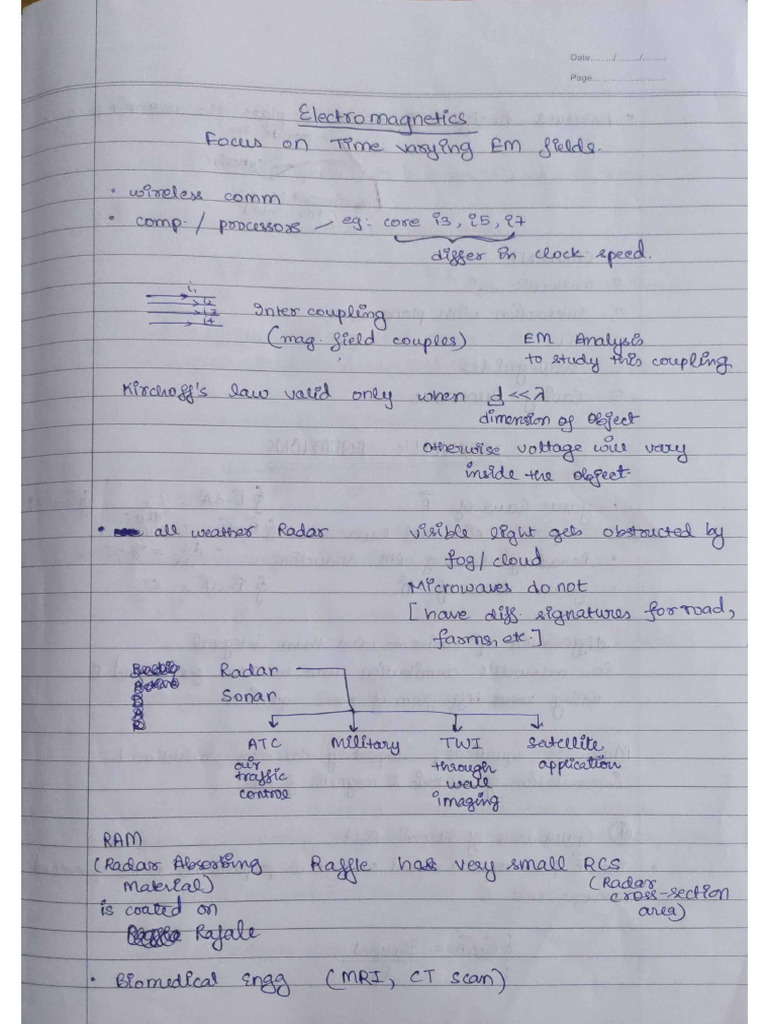 Date......../......../.........
Page.............................
Electromagnetics
Focus on Time varying EM fields.
• wireless comm
• comp. / processors – eg: core i3, i5, i7
differ in clock speed.
i1
i2
i3
i4
Inter coupling
(mag. field couples)
EM Analysis
to study this coupling
Kirchoff's law valid only when d<<λ
dimension of object
otherwise voltage will vary
inside the object
• all weather Radar
visible light gets obstructed by
fog/cloud
Microwaves do not
[have diff. signatures for road,
farms, etc.]
Radar
Sonar
ATC
air
traffic
control
Military
TWI
through
wall
imaging
Satellite
application
RAM
(Radar Absorbing
Material)
is coated on
Rafale
Raffle has very small RCS
(Radar
cross-section
area)
• Biomedical Engg (MRI, CT scan)